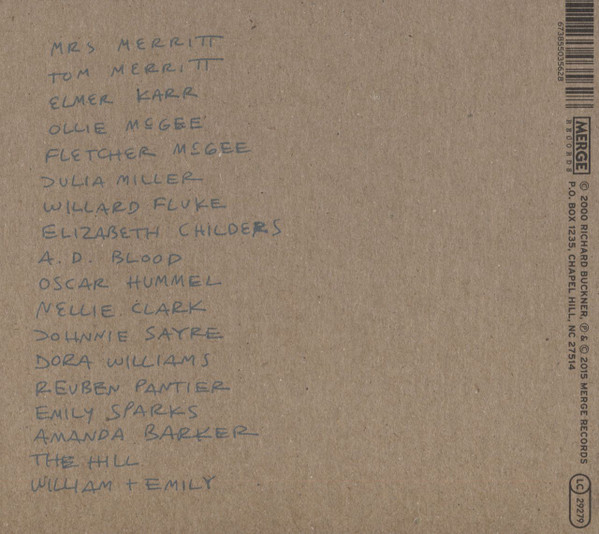 MRS MERRITT
TOM MERRITT
ELMER KARR
OLLIE McGEE
FLETCHER McGEE
JULIA MILLER
WILLARD FLUKE
ELIZABETH CHILDERS
A. D. BLOOD
OSCAR HUMMEL
NELLIE CLARK
JOHNNIE SAYRE
DORA WILLIAMS
REUBEN PANTIER
EMILY SPARKS
AMANDA BARKER
THE HILL
WILLIAM + EMILY
673855035628
MERGE
RECORDS
© 2000 RICHARD BUCKNER, ℗ & © 2015 MERGE RECORDS
P.O. BOX 1235, CHAPEL HILL, NC 27514
LC 29279